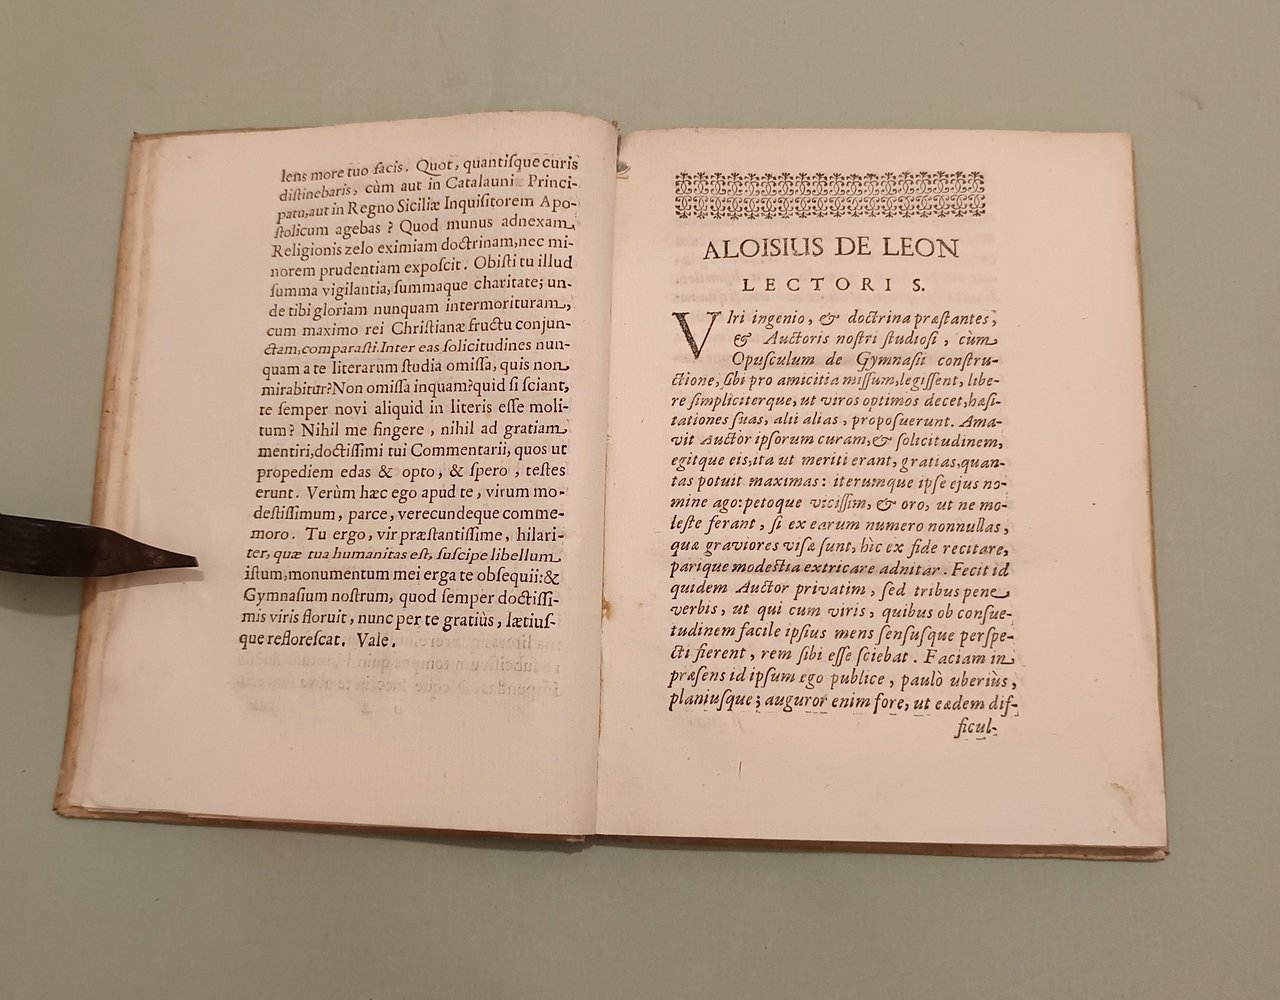 lens more tuo facis. Quot, quantiſque curis
diſtinebaris, cùm aut in Catalauniæ Princi-
patu, aut in Regno Siciliæ Inquiſitorem Apo-
ſtolicum agebas ? Quod munus adnexam
Religionis zelo eximiam doctrinam, nec mi-
norem prudentiam expoſcit. Obiſti tu illud
ſumma vigilantia, ſummaque charitate; un-
de tibi gloriam nunquam intermorituram,
cum maximo rei Chriſtianæ fructu conjun-
ctam, comparaſti. Inter eas ſolicitudines nun-
quam a te literarum ſtudia omiſſa, quis non
mirabitur? Non omiſſa inquam? quid ſi ſciant,
te ſemper novi aliquid in literis eſſe moli-
tum? Nihil me fingere , nihil ad gratiam
mentiri, doctiſſimi tui Commentarii, quos ut
propediem edas & opto, & ſpero , teſtes
erunt. Verùm hæc ego apud te, virum mo-
deſtiſſimum, parce, verecundeque comme-
moro. Tu ergo, vir præſtantiſſime, hilari-
ter, quæ tua humanitas eſt, ſuſcipe libellum
iſtum, monumentum mei erga te obſequii: &
Gymnaſium noſtrum, quod ſemper doctiſſi-
mis viris floruit, nunc per te gratiùs, lætiuſ-
que refloreſcat. Vale.
ALOISIUS DE LEON
LECTORI S.
VIri ingenio, & doctrina præſtantes,
& Auctoris noſtri ſtudioſi , cùm
Opuſculum de Gymnaſii conſtru-
ctione, ſibi pro amicitia miſſum, legiſſent, libe-
re ſimpliciterque, ut viros optimos decet, hæſi-
tationes ſuas, alii alias , propoſuerunt. Ama-
vit Auctor ipſorum curam, & ſolicitudinem,
egitque eis, ita ut meriti erant, gratias, quan-
tas potuit maximas: iterumque ipſe ejus no-
mine ago: petoque viciſſim, & oro, ut ne mo-
leſte ferant , ſi ex earum numero nonnullas,
quæ graviores viſæ ſunt, hìc ex fide recitare,
parique modeſtia extricare adnitar. Fecit id
quidem Auctor privatim , ſed tribus pene
verbis, ut qui cum viris, quibus ob conſue-
tudinem facile ipſius mens ſenſuſque perſpe-
cti fierent , rem ſibi eſſe ſciebat . Faciam in
præſens id ipſum ego publice , paulò uberiùs,
planiuſque; auguror enim fore, ut eædem dif-
ficul-